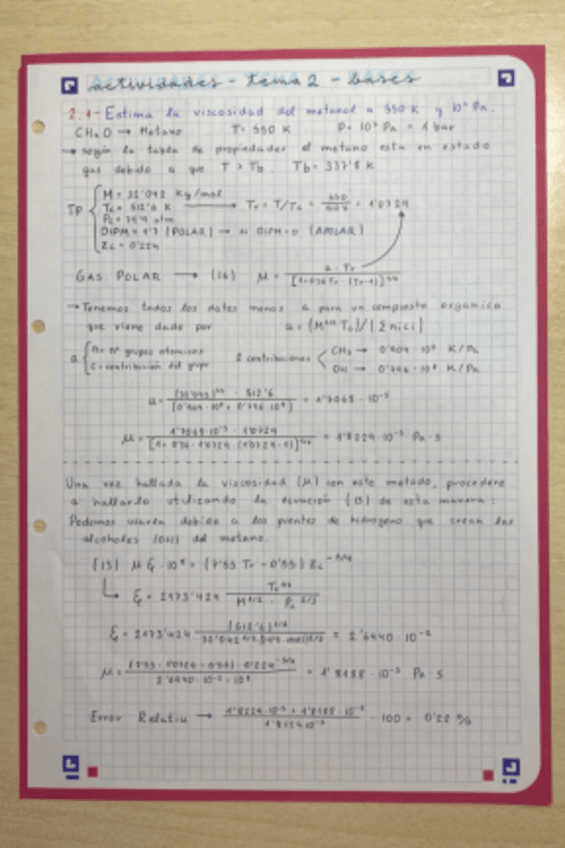 actividades - tema 2 - bases
2.1- Estima la viscosidad del metanol a 550 K y 10⁵ Pa.
CH₄O → Metano T= 550 K P= 10⁵ Pa = 1 bar
→ según la tabla de propiedades el metano esta en estado
gas debido a que T > Tb. Tb= 337'8 K
TP
M= 32'042 Kg/mol
Tc= 512'6 K → Tr = T/Tc = = 1'0729
Pc= atm
DIPM= 1'7 (POLAR) → si DIPM=0 (APOLAR)
Zc= 0'224
GAS POLAR → (16) μ = a · Tr / [1+0'36 Tr · (Tr-1)]
→ Tenemos todos los datos menos a para un compuesto organico
que viene dado por a= (M Tc)/(Σnici)
a
n= nº grupos atomicos
C= contribución del grupo
2 contribuciones
CH₃ → 0'904 · 10⁸ K/Pa
OH → 0'796 · 10⁸ K/Pa
a = · 512'6 / [0'904 · 10⁸ + 0'796 · 10⁸] = 1'7065 · 10⁻⁵
μ = 1'7065·10⁻⁵ · 1'0729 / = 1'8224 · 10⁻⁵ Pa·s
Una vez hallada la viscosidad (μ) con este metodo, procedere
a hallarlo utilizando la ecuación (13) de esta manera:
Podemos usarla debido a los puentes de hidrogeno que crean los
alcoholes (OH) del metano.
(13) μ ξ · 10 = (7'55 Tr - 0'55) Zc⁻⁵/⁴
ξ = 2173'424 Tc¹/⁶ / M¹/² · Pc²/³
ξ = 2173'424 (512'6)¹/⁶ / = 2'6440 · 10⁻²
μ = / = 1'8188 · 10⁻⁵ Pa · s
Error Relativo → · 100 = 0'22 %